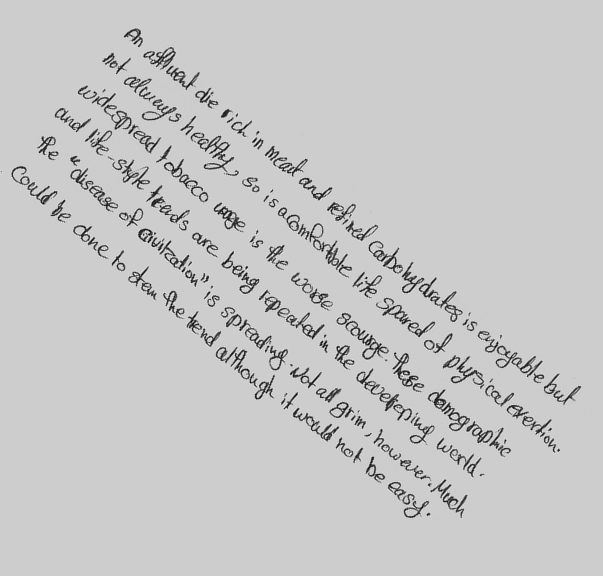 An affluent die rich in meat and refined carbohydrates is enjoyable but
not always healthy, so is a comfortable life spared of physical exertion.
widespread tobacco usage is the worse scourge. These demographic
and life-style trends are being repeated in the developing world.
the "disease of civilization" is spreading. Not all grim, however. Much
could be done to stem the trend although it would not be easy.